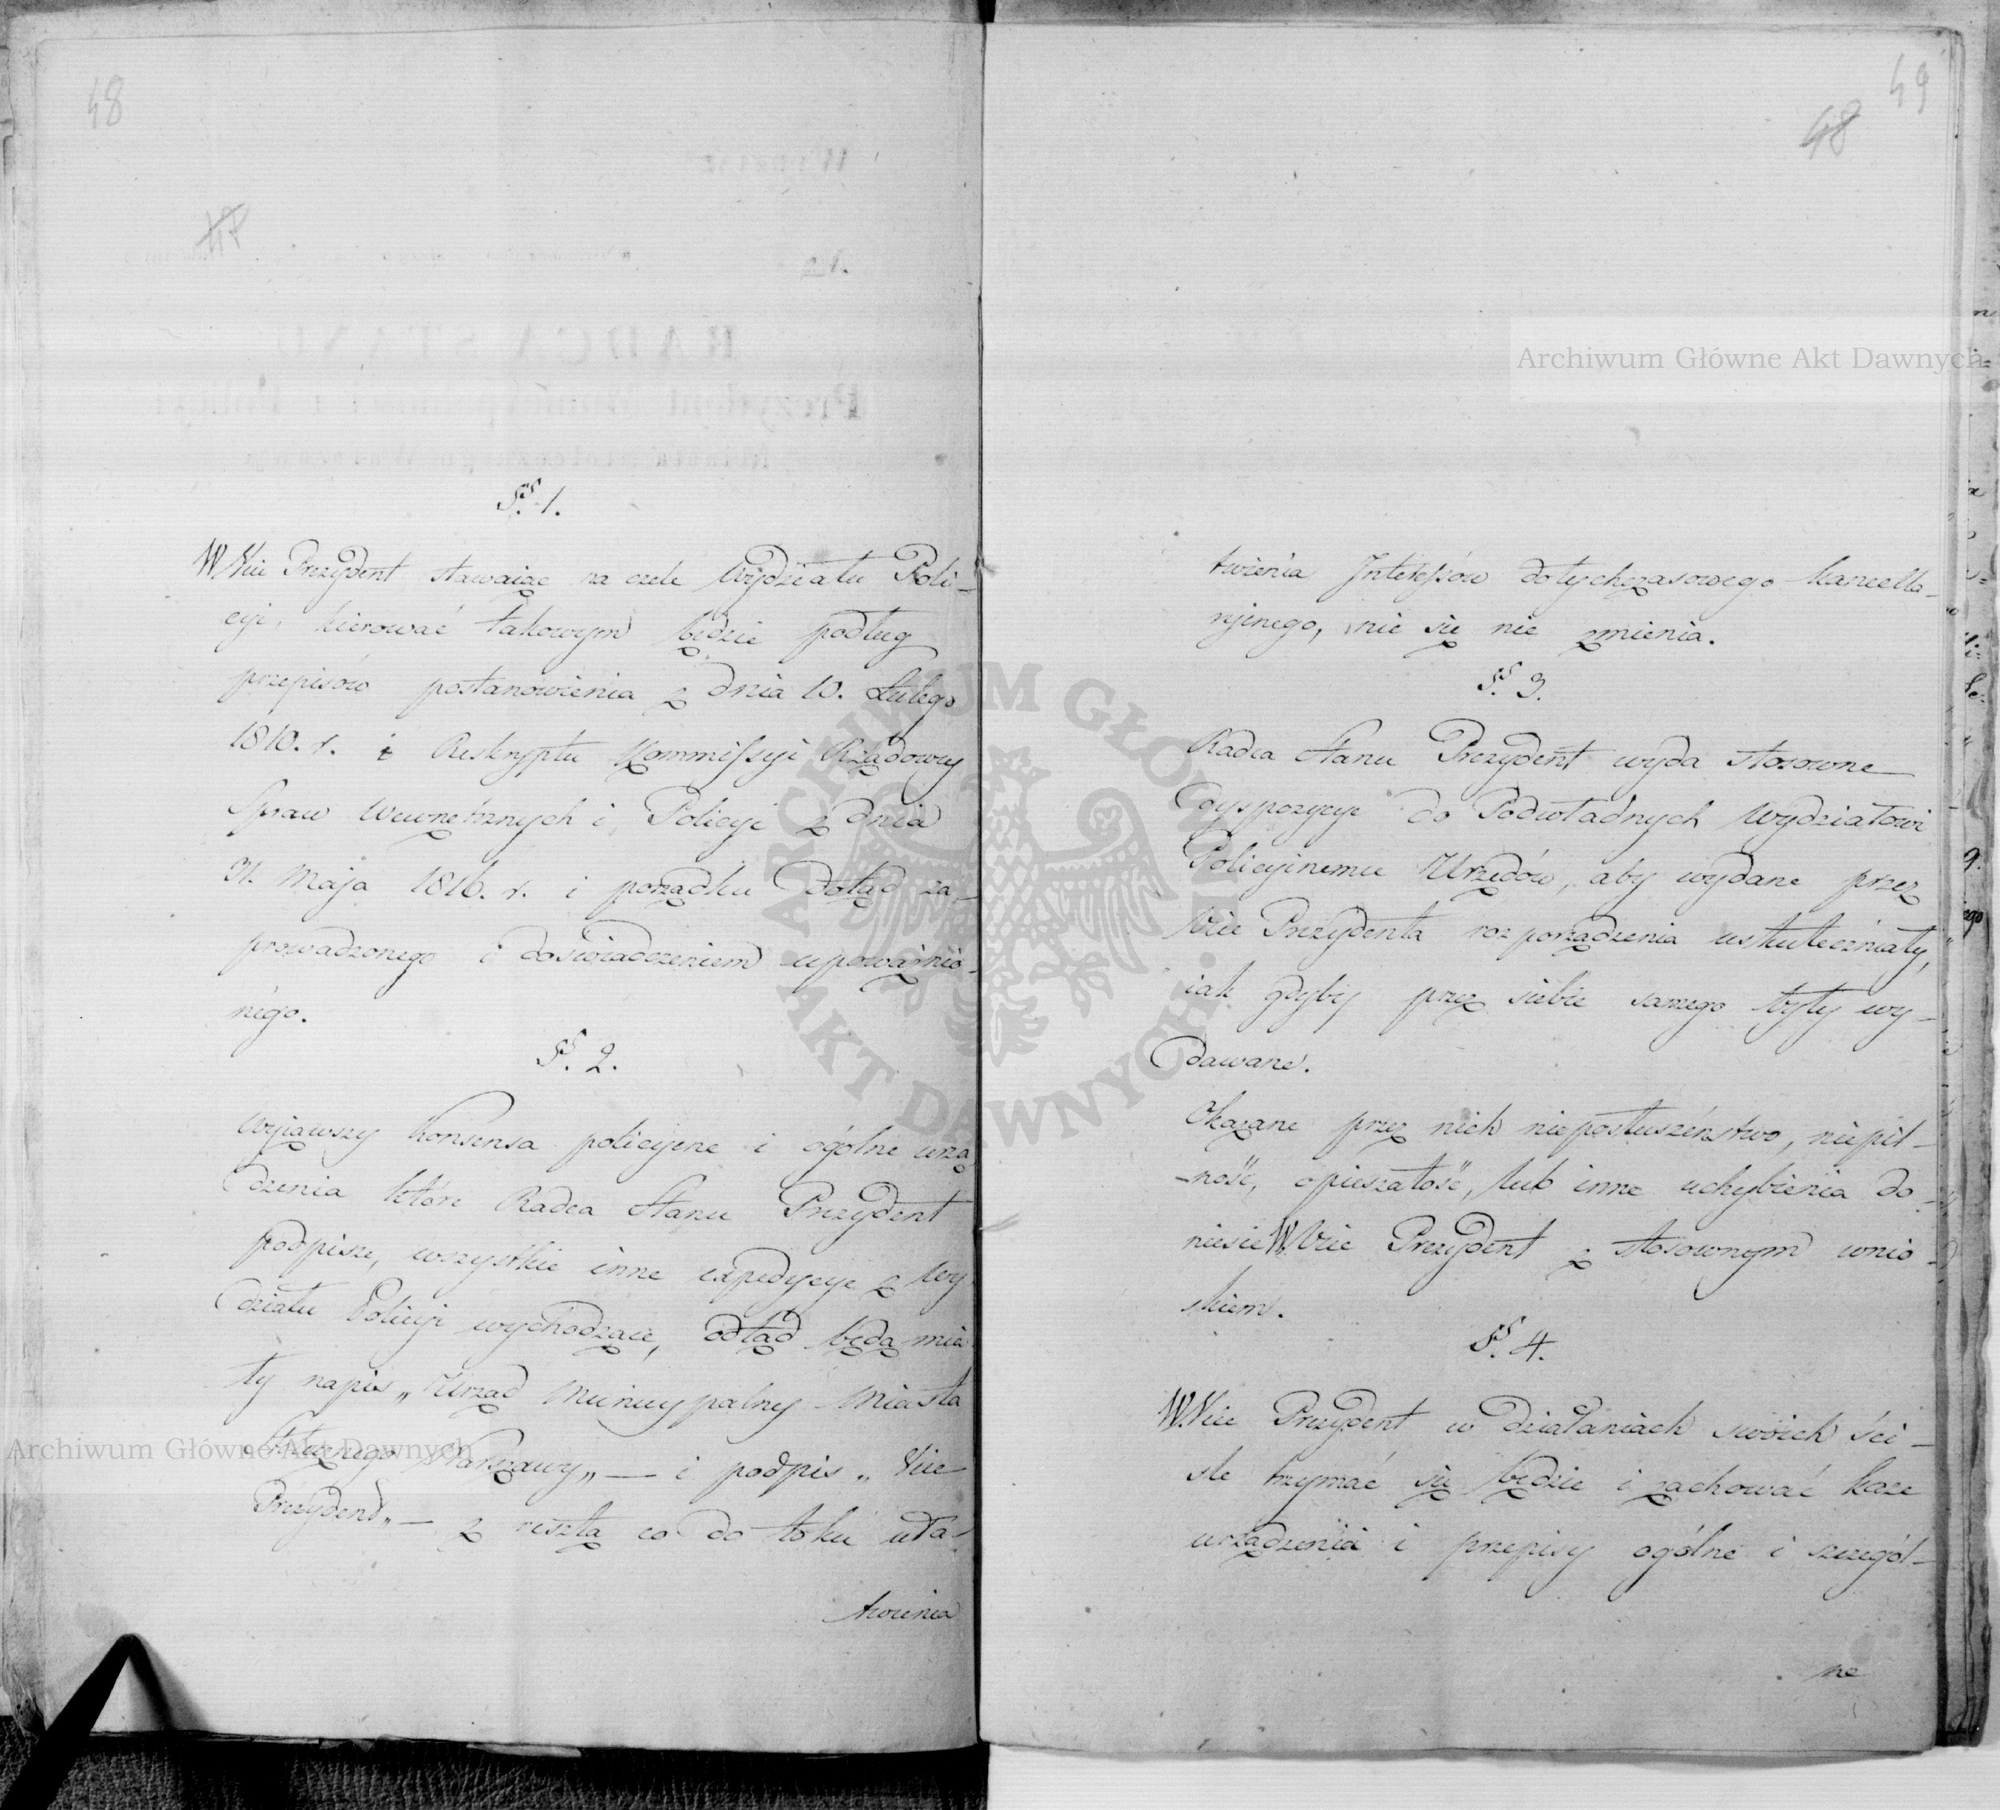 48
47
§§. 1.
W. Vice Prezydent stawaiąc na czele Wydziału Poli-
cyi, kierować takowym będzie podług
przepisów postanowienia z dnia 10. Lutego
1810. r. i Reskryptu Kommissyi Rządowey
Spraw Wewnętrznych i Policyi z dnia
31. Maja 1816. r. i porządku dotąd za-
prowadzonego i doświadczeniem upoważnio-
nego.
§§. 2.
Wyiąwszy Konsensa policyine i ogólne urzą
dzenia które Radca Stanu Prezydent
podpisze, wszystkie inne expedycye z Wy
działu Policyi wychodzące, odtąd będą mia
ły napis „Urząd Municypalny Miasta
Stołecznego Warszawy„ — i podpis „Vice
Prezydent„ — z resztą co do toku uła-
twienia
49
48
twienia Interessów dotychczasowego kancella-
ryinego, nic się nie zmienia.
§§. 3.
Radca Stanu Prezydent wyda stosowne
dyspozycye do Podwładnych Wydziałowi
Policyinemu Urzędów, aby wydane przez
Vice Prezydenta rozporządzenia uskuteczniały,
iak gdyby przez siebie samego były wy-
dawane.
Okazane przez nich nieposłuszeństwo, niepil-
-ność, opieszałość, lub inne uchybienia do-
niesie W. Vice Prezydent z stosownym wnio
skiem.
§§. 4.
W. Vice Prezydent w działaniach swoich ści-
śle trzymać się będzie i zachować każe
urządzenia i przepisy ogólne i szczegól-
ne
Archiwum Główne Akt Dawnych
Archiwum Główne Akt Dawnych
ARCHIWUM GŁÓWNE · AKT DAWNYCH ·